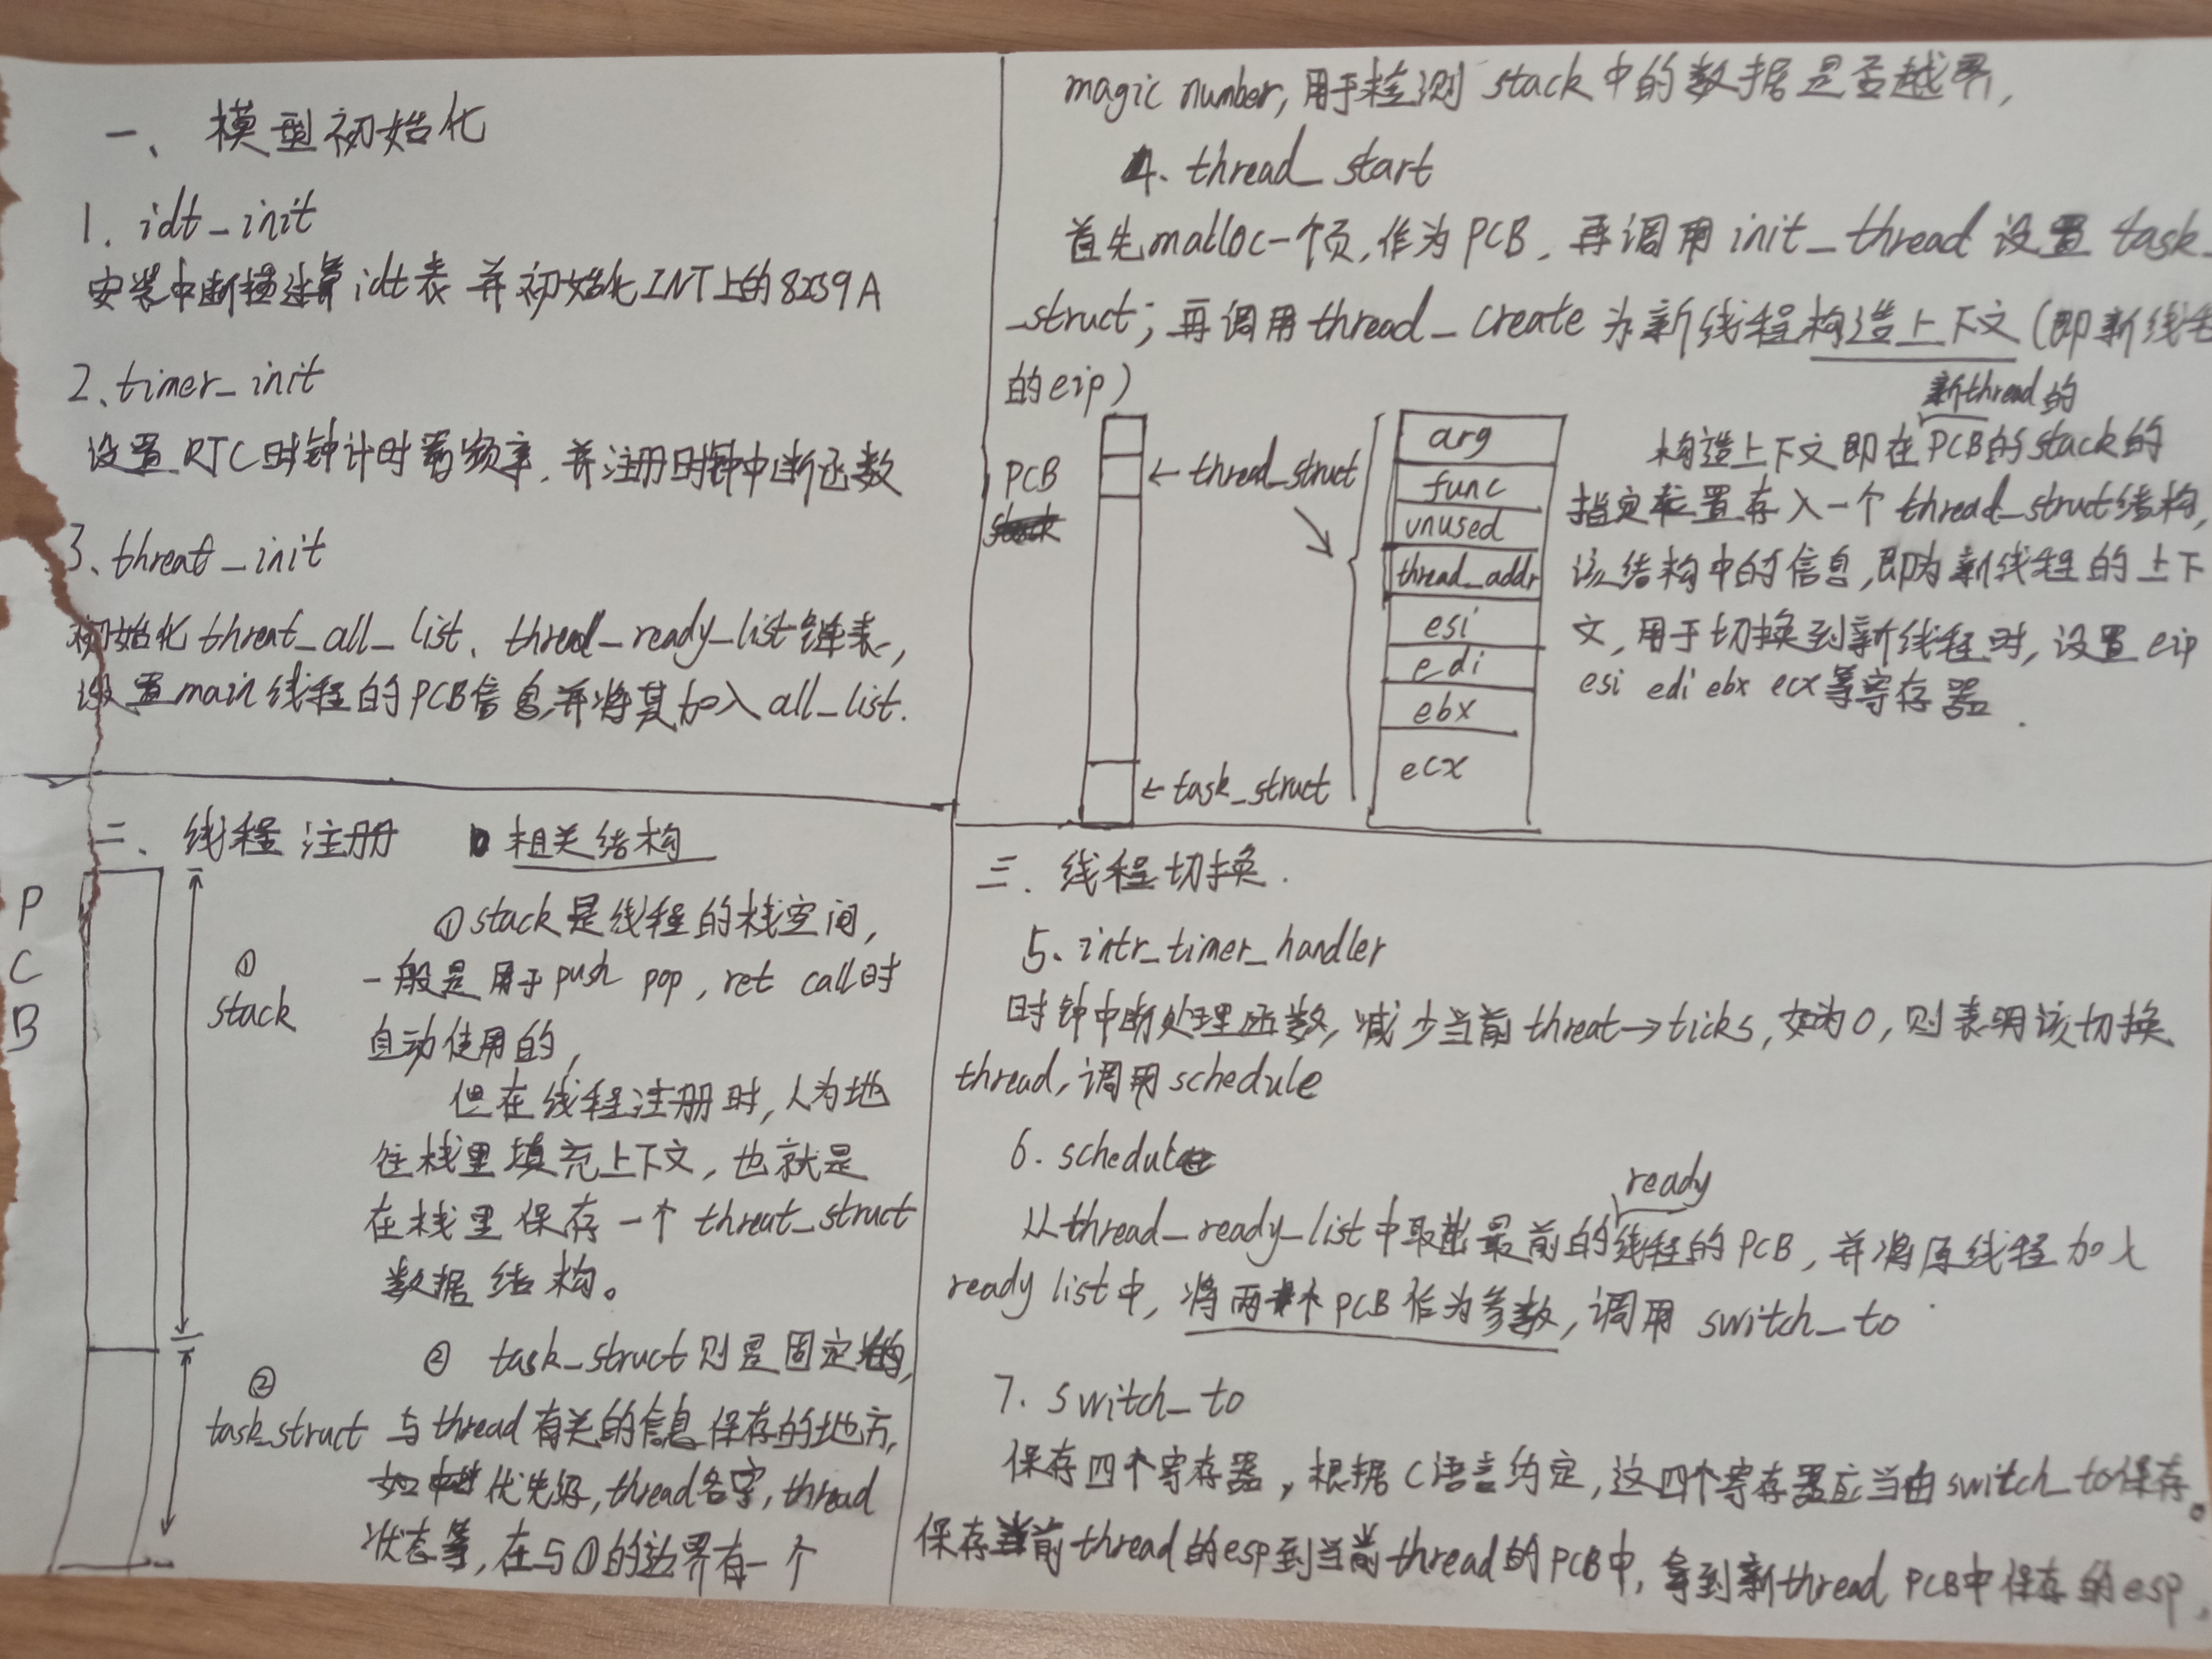 一、模型初始化
1. idt_init
安装中断描述符 idt表 并初始化INT上的8259A
2、timer_init
设置RTC时钟计时器频率，并注册时钟中断函数
3、threat_init
初始化threat_all_list、thread_ready_list链表，
设置main线程的PCB信息，并将其加入all_list.
二、线程注册 相关结构
P
C
B
①
stack
①stack是线程的栈空间，
一般是用于push pop，ret call时
自动使用的，
但在线程注册时，人为地
往栈里填充上下文，也就是
在栈里保存一个 threat_struct
数据结构。
②
task_struct
② task_struct则是固定的，
与thread有关的信息保存的地方，
如优先级，thread名字，thread
状态等，在与①的边界有一个
magic number，用于检测stack中的数据是否越界，
4、thread_start
首先malloc一个页，作为PCB，再调用init_thread设置task_
_struct；再调用thread_create为新线程构造上下文（即新线
的eip）
PCB
← thread_struct
← task_struct
arg
func
unused
thread_addr
esi
edi
ebx
ecx
新thread的
构造上下文即在PCB的stack的
指定位置存入一个thread_struct结构，
该结构中的信息，即为新线程的上下
文，用于切换到新线程时，设置eip
esi edi ebx ecx等寄存器.
三．线程切换．
5、intr_timer_handler
时钟中断处理函数，减少当前threat→ticks，如为0，则表明该切换
thread，调用schedule
6. schedule
ready
从thread_ready_list中取出最前的线程的PCB，并将原线程加入
ready list中，将两个PCB作为参数，调用switch_to
7. switch_to
保存四个寄存器，根据C语言约定，这四个寄存器应当由switch_to保存。
保存当前thread的esp到当前thread的PCB中，拿到新thread PCB中保存的esp，